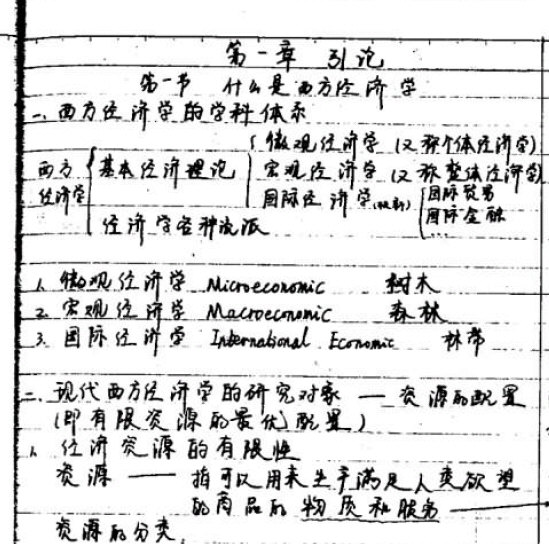 第一章 引论
第一节 什么是西方经济学
一、西方经济学的学科体系
微观经济学(又称个体经济学)
西方 基本经济理论 宏观经济学(又称整体经济学)
经济学 国际经济学 国际贸易
国际金融
...
经济学各种流派
1. 微观经济学 Microeconomic 树木
2. 宏观经济学 Macroeconomic 森林
3. 国际经济学 International Economic 林带
二、现代西方经济学的研究对象 — 资源的配置
(即有限资源的最优配置)
1. 经济资源的有限性
资源 —— 指可以用来生产满足人类欲望
的商品的物质和服务
资源的分类